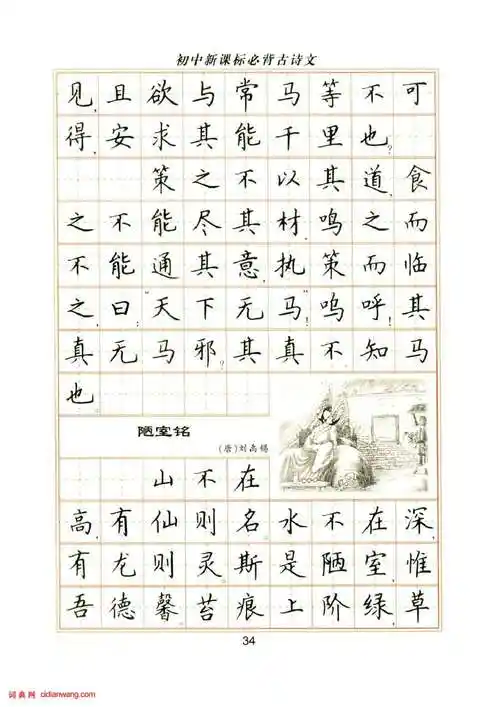 初中新课标必背古诗文
见,且欲与常马等不可
得,安求其能千里也?
策之不以其道,食
之不能尽其材,鸣之而
不能通其意,执策而临
之,曰:“天下无马”!呜呼!其
真无马邪?其真不知马
也。
陋室铭
(唐)刘禹锡
山不在
高,有仙则名。水不在深,
有龙则灵。斯是陋室,惟
吾德馨。苔痕上阶绿,草
34
词典网 cidianwang.com